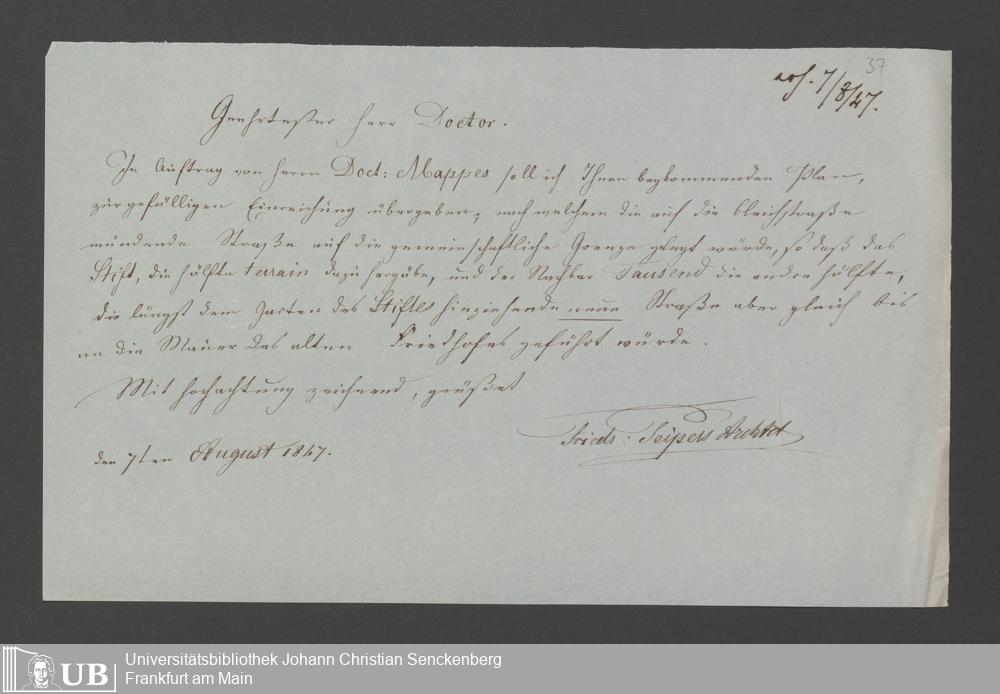 37
erh. 7/8/47.
Geehrtester Herr Doctor.
Im Auftrag von Herrn Doct: Mappes soll ich Ihnen beykommenden Plan,
zur gefälligen Einreichung übergeben, nach welchem die auf die Bleichstraße
mündende Straße auf die gemeinschaftliche Grenze gelegt würde, so daß das
Stift, die Hälfte terrain dazu hergäbe, und der Nachbar Tausend die andre Hälfte,
die längst dem Garten des Stiftes hinziehende neue Straße aber gleich bis
an die Mauer des alten Friedhofes geführt würde.
Mit Hochachtung zeichnend, grüßet
Friedr:
den 7ten August 1847.
UB
Universitätsbibliothek Johann Christian Senckenberg
Frankfurt am Main